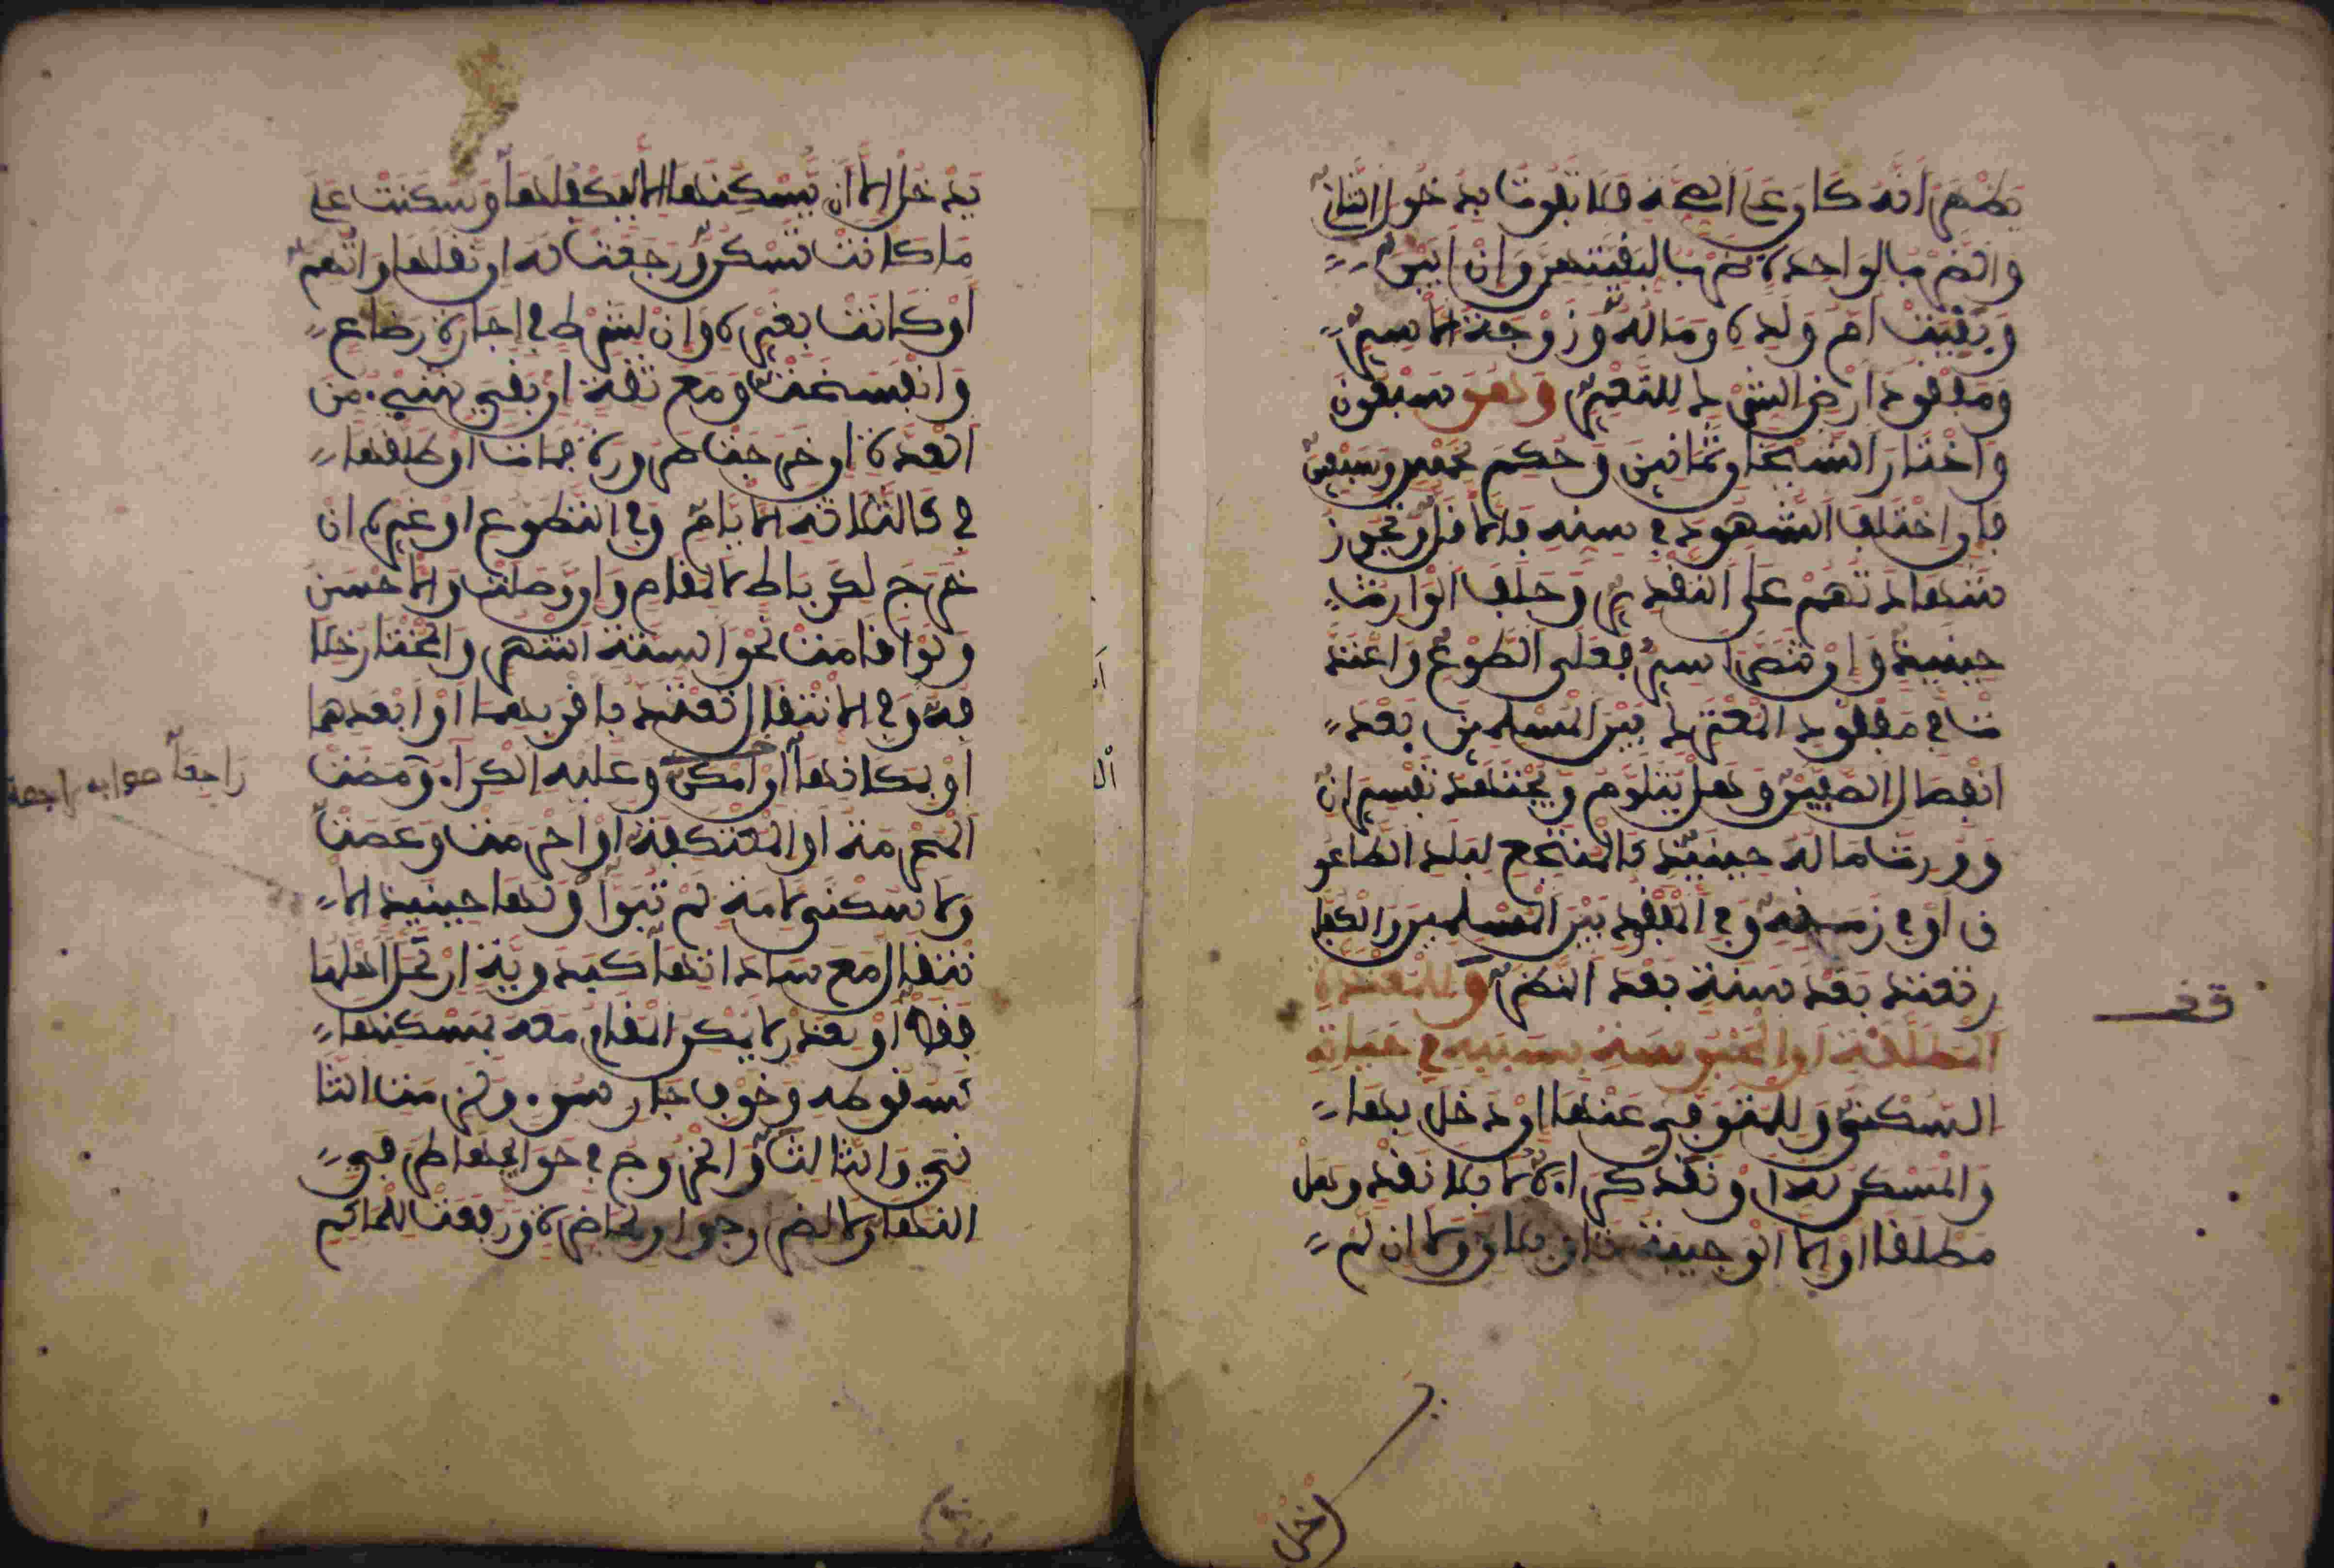 يظهر انه كان على الصحة فكالمفوت بدخول الثاني
وان ضرب الواحدة ضرب لبقيتهن وان ابين
وبقيت ام ولده وماله وزوجة الاسير
ومفقود ارض الشرك للتعمير وهو سبعون
واختار الشيخان ثمانين وحكم بخمس وسبعين
فان اختلف الشهود في سنه فالاقل وتجوز
شهادتهم على التقدير وحلف الوارث
حينئذ وان تنصر اسير فعلى الطوع واعتد
ت في مفقود المعترك بين المسلمين بعد
انفصال الصفين وهل يتلوم ويجتهد تفسيران
وورث ماله حينئذ كالمنتجع لبلد الطاعو
ن او في زمنه وفي الفقد بين المسلمين والكفا
ر تعتد بعد سنة بعد النظر وللمعتدة
المطلقة او المحبوسة بسببه في حياته
السكنى وللمتوفى عنها ان دخل بها
والمسكن له او نقد كراءه لا بلا نقد وهل
مطلقا او الا الوجيبة تاويلان ولا ان لم
قف
يدخل الا ان يسكنها الا ليكفلها وسكنت على
ما كانت تسكن ورجعت له ان نقلها واتهم
او كانت بغيره وان لشرط في اجارة رضاع
وانفسخت ومع ثقة ان بقي شيء من
العدة ان خرجت ضرورة فمات او طلقها
في كالثلاثة الايام وفي التطوع او غيره ان
خرج لكرباط لا لمقام وان وصلت والاحسن
ولو اقامت نحو الستة اشهر والمختار خلا
فه وفي الانتقال تعتد باقربهما او ابعدهما
او بمكانها ان امكن وعليه الكراء ومضت
المحرمة او المعتكفة او احرمت وعصت
ولا سكنى لامة لم تبوا ولها حينئذ الا
نتقال مع ساداتها كبدوية ارتحل اهلها
فقط او لعذر لا يمكن المقام معه بمسكنها
كسقوطه وخوف جار سوء ولزمت الثا
ني والثالث والخروج في حوائجها طرفي
النهار لا لضر وجوار لحاضرة ورفعت للحاكم
راجعا صوابه راجعة